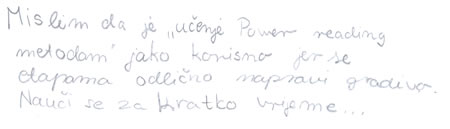 Mislim da je „učenje Power reading
metodom" jako korisno jer se
etapama odlično napravi gradivo.
Nauči se za kratko vrijeme...